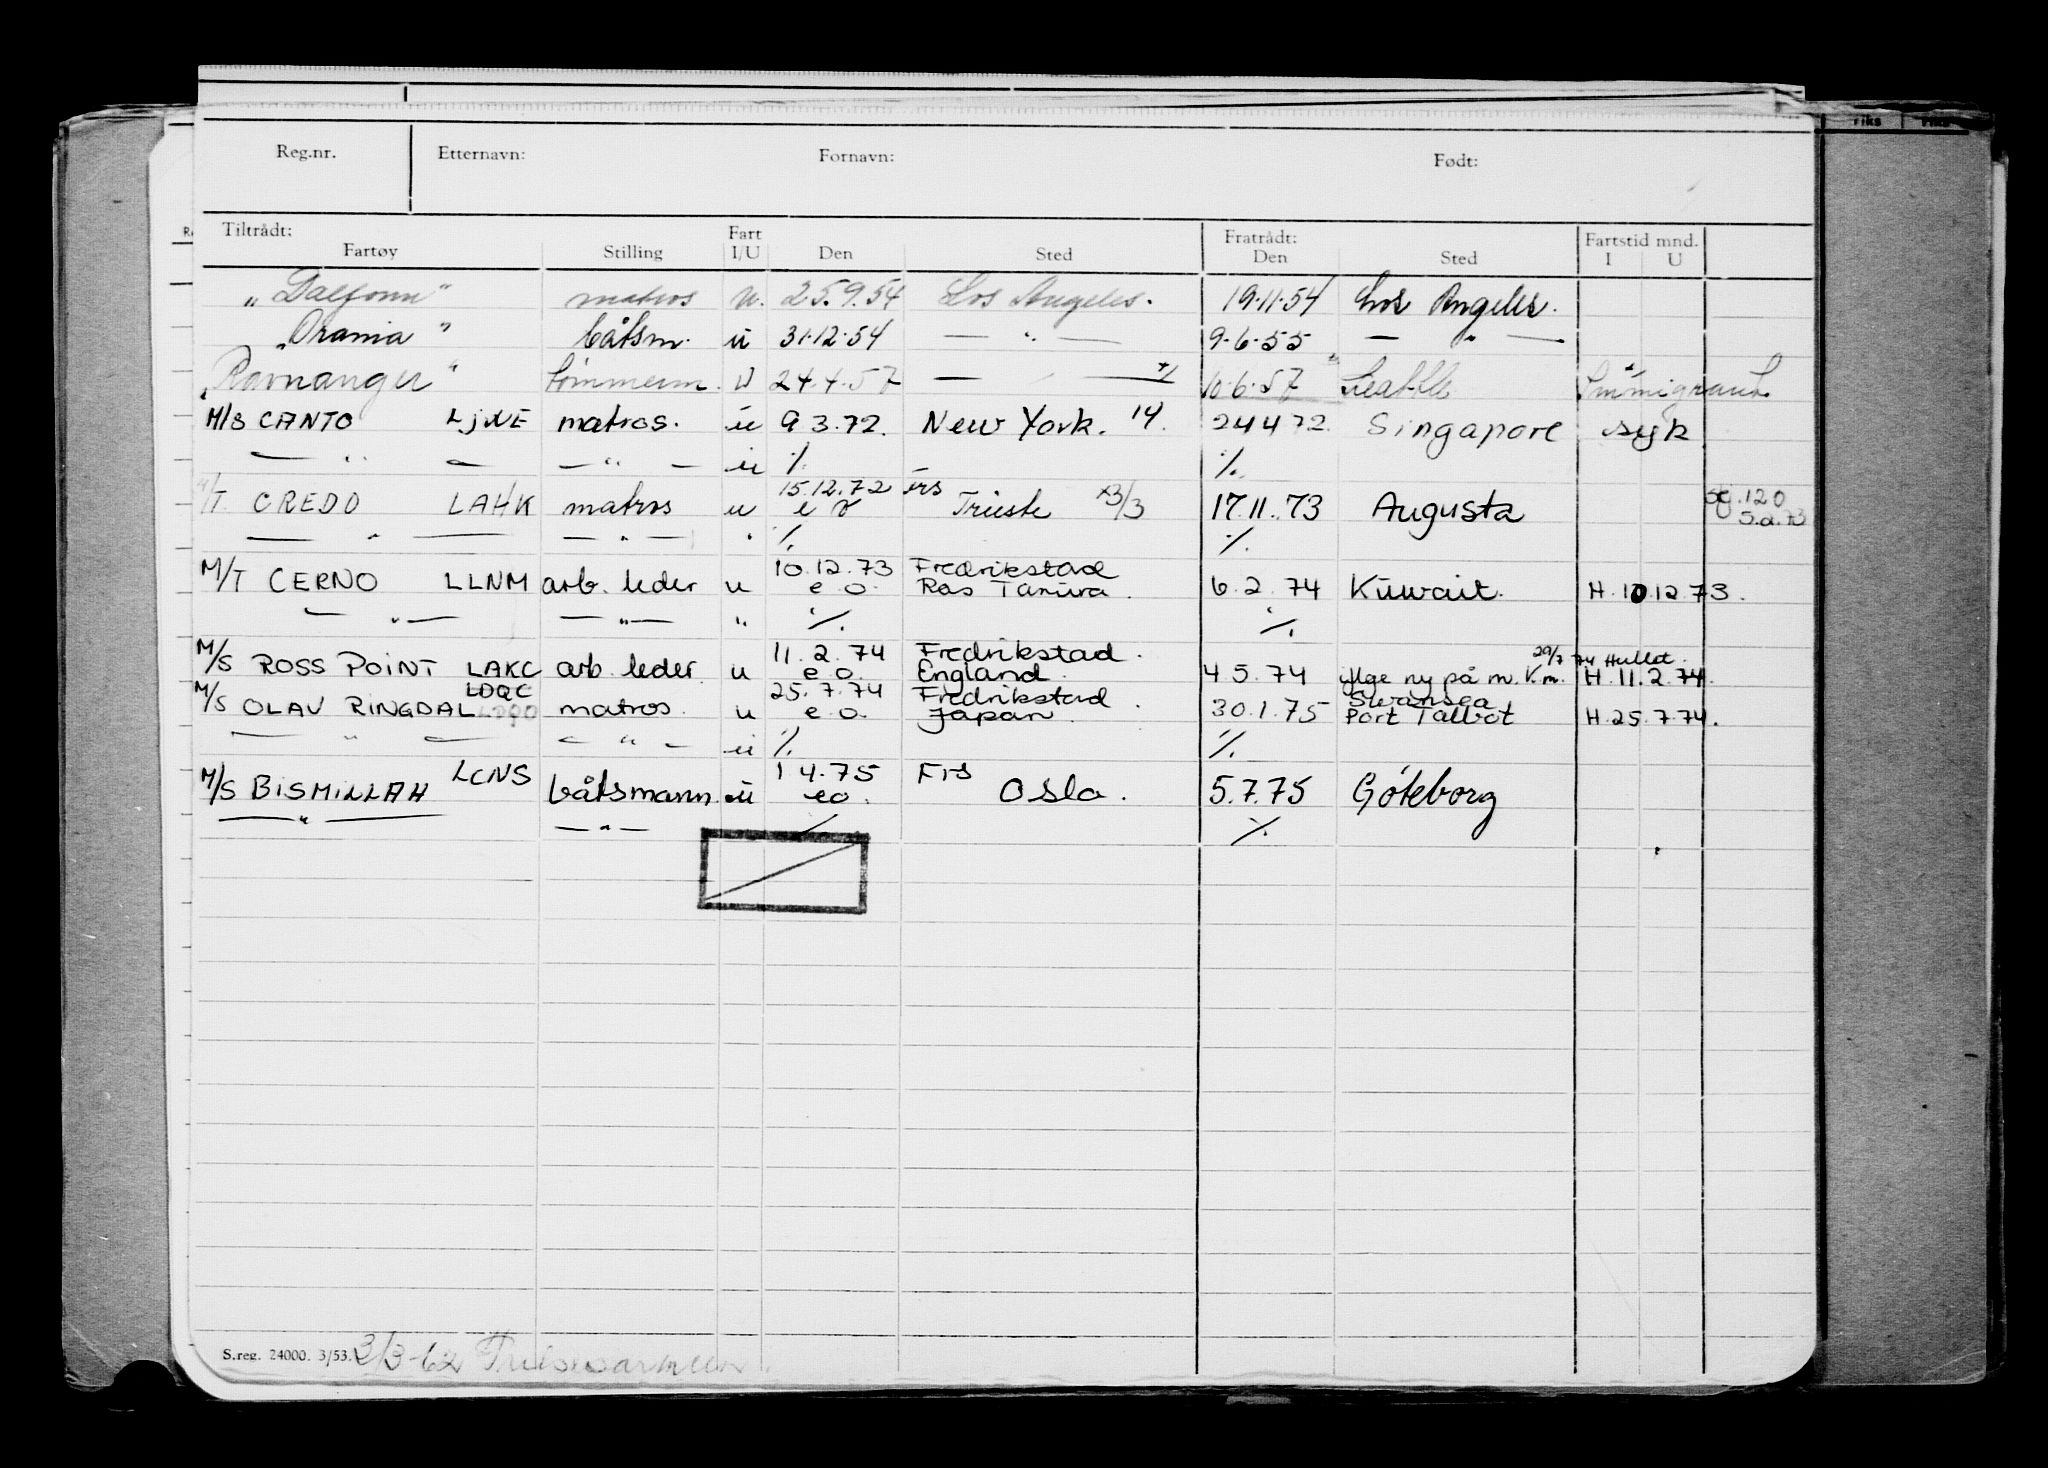 Reg.nr. Etternavn: Fornavn: Født:
Tiltrådt: Fart Fratrådt: Fartstid mnd.
Fartøy Stilling I/U Den Sted Den Sted I U
„Dalfonn" matros u. 25.9.54 Los Angeles. 19.11.54 Los Angeles.
„Orania" båtsm. u 31.12.54 — " — 9.6.55 — " —
„Ravnanger" tømmerm. U 24.4.57 — " — 10.6.57 Seattle Immigrant
M/S CANTO LJWE matros. u 9 3.72. New York. 14. 24 4 72. Singapore syk
— " — — " — u ./. ./.
15.12.72 frs
M/T. CREDO LAHK matros u e o Trieste x3/3 17.11.73 Augusta sg.120
5.2.73
— " — — " — " ./. ./.
10.12.73 Fredrikstad
M/T CERNO LLNM arb. leder u e o. Ras Tanura. 6.2.74 Kuwait. H.10.12.73.
— " — — " — " ./. ./.
11.2.74 Fredrikstad. 29/7 74 Hullet.
M/S ROSS POINT LAKC arb. leder. u e o. England. 4 5.74 iflge ny på m.V.m. H.11.2.74.
LDQC 25.7.74 Fredrikstad Swansea
M/S OLAV RINGDAL LDQO matros. u e o. Japan. 30.1.75 Port Talbot H.25.7.74.
— " — — " — u ./. ./.
LCNS 1 4.75 Frs
M/S BISMILLAH båtsmann. u eo. Oslo. 5.7.75 Göteborg
— " — — " — ./. ./.
S.reg. 24000. 3/53. 3/3-62
Fiks